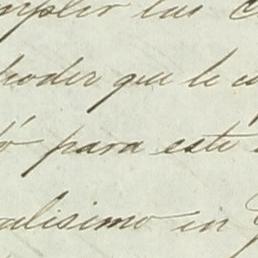 mplir las
poder que le
ó para este
alisimo en